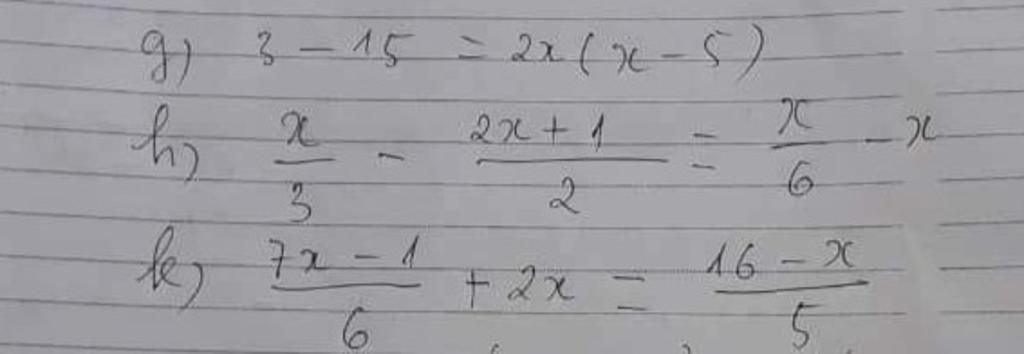 g) 3 - 15 = 2x(x - 5)
h) x/3 - (2x + 1)/2 = x/6 - x
k) (7x - 1)/6 + 2x = (16 - x)/5